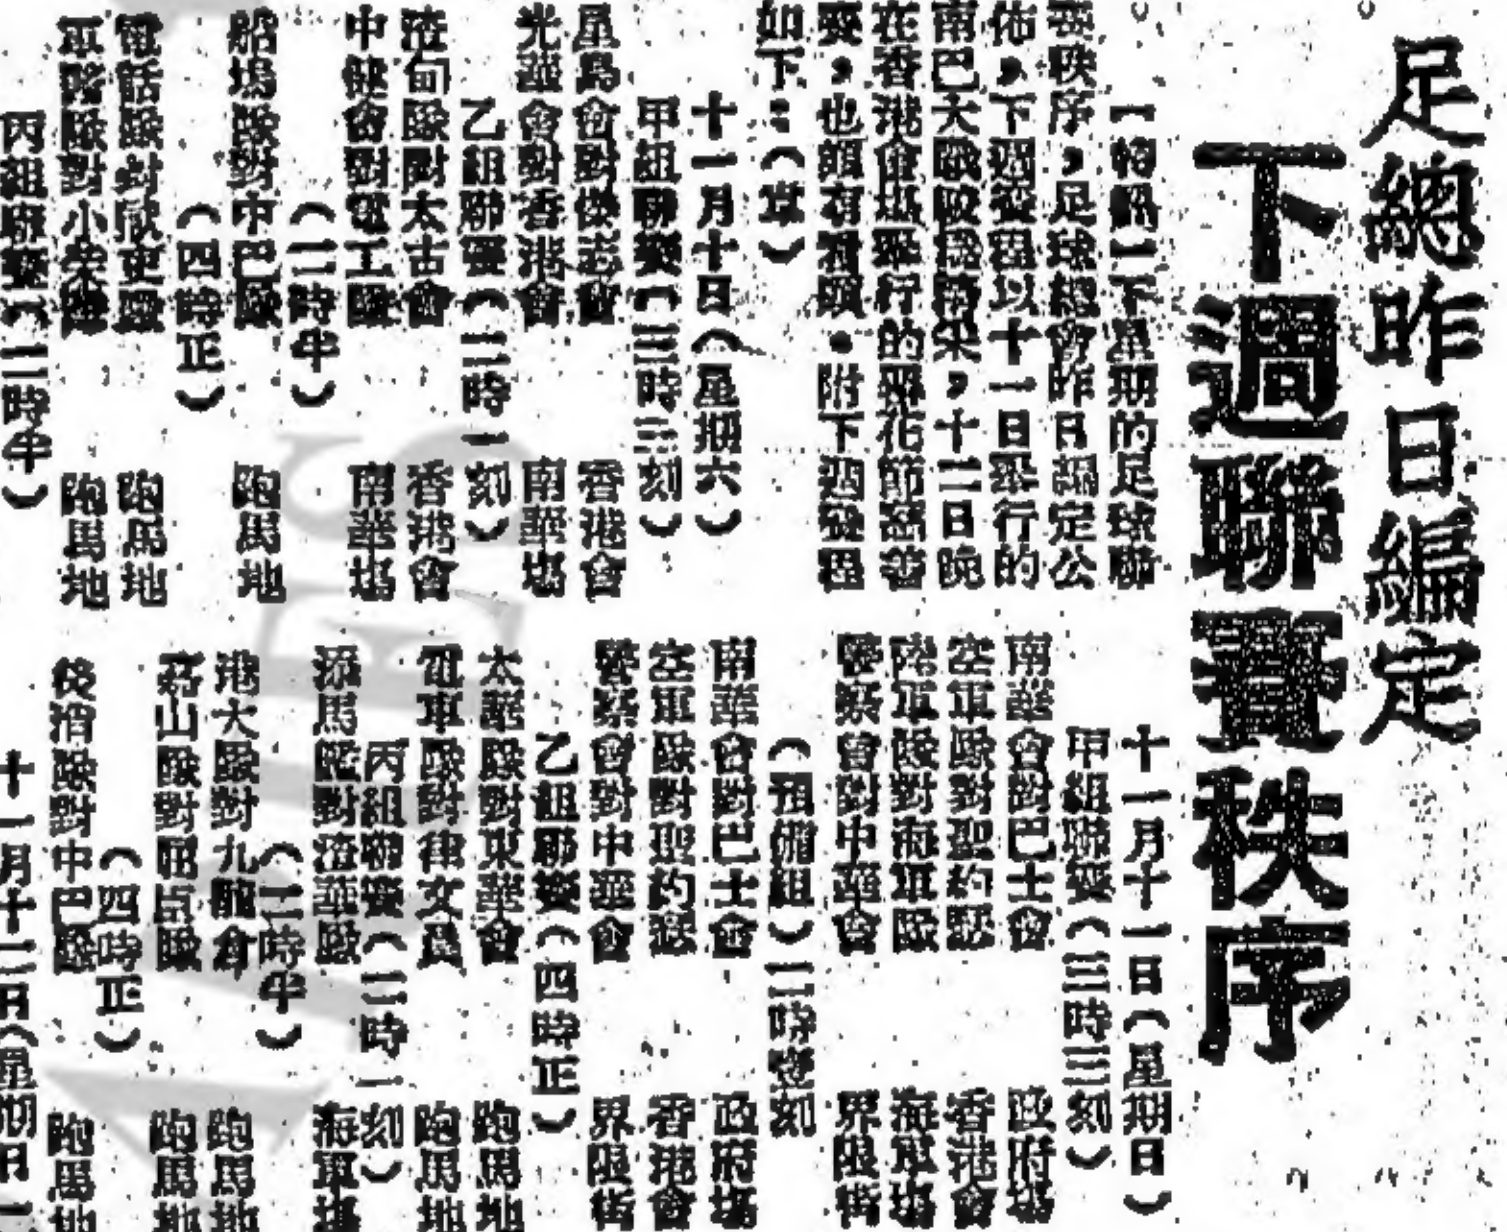 足總昨日編定
下週聯賽秩序
【特訊】下星期的足球聯
賽秩序，足球總會昨日編定公
佈，下週賽程以十一日舉行的
南巴大戰最為精采，十二日晚
在香港會場舉行的
賽，也頗有看頭。附下週賽程
如下：（草）
十一月十日（星期六）
甲組聯賽（三時三刻）
星島會對傑志會 香港會
光華會對香港會 南華場
乙組聯賽（二時一刻）
渣甸隊對太古會 香港會
中健會對電工隊 南華場
（二時半）
船塢隊對中巴隊 跑馬地
（四時正）
電話隊對獄吏隊 跑馬地
軍醫隊對小柴隊 跑馬地
丙組聯賽（二時半）
十一月十一日（星期日）
甲組聯賽（三時三刻）
南華會對巴士會 政府場
空軍隊對聖約瑟 香港會
陸軍隊對海軍隊 海軍場
警察會對中華會 界限街
（預備組）二時壹刻
南華會對巴士會 政府場
空軍隊對聖約瑟 香港會
警察會對中華會 界限街
乙組聯賽（四時正）
太華隊對東華會 跑馬地
電車隊對律文員 跑馬地
丙組聯賽（二時一刻）
添馬艦對渣華隊 海軍場
（二時半）
港大隊對九龍倉 跑馬地
荔山隊對屈臣隊 跑馬地
（四時正）
後備隊對中巴隊 跑馬地
十一月十二日（星期日一